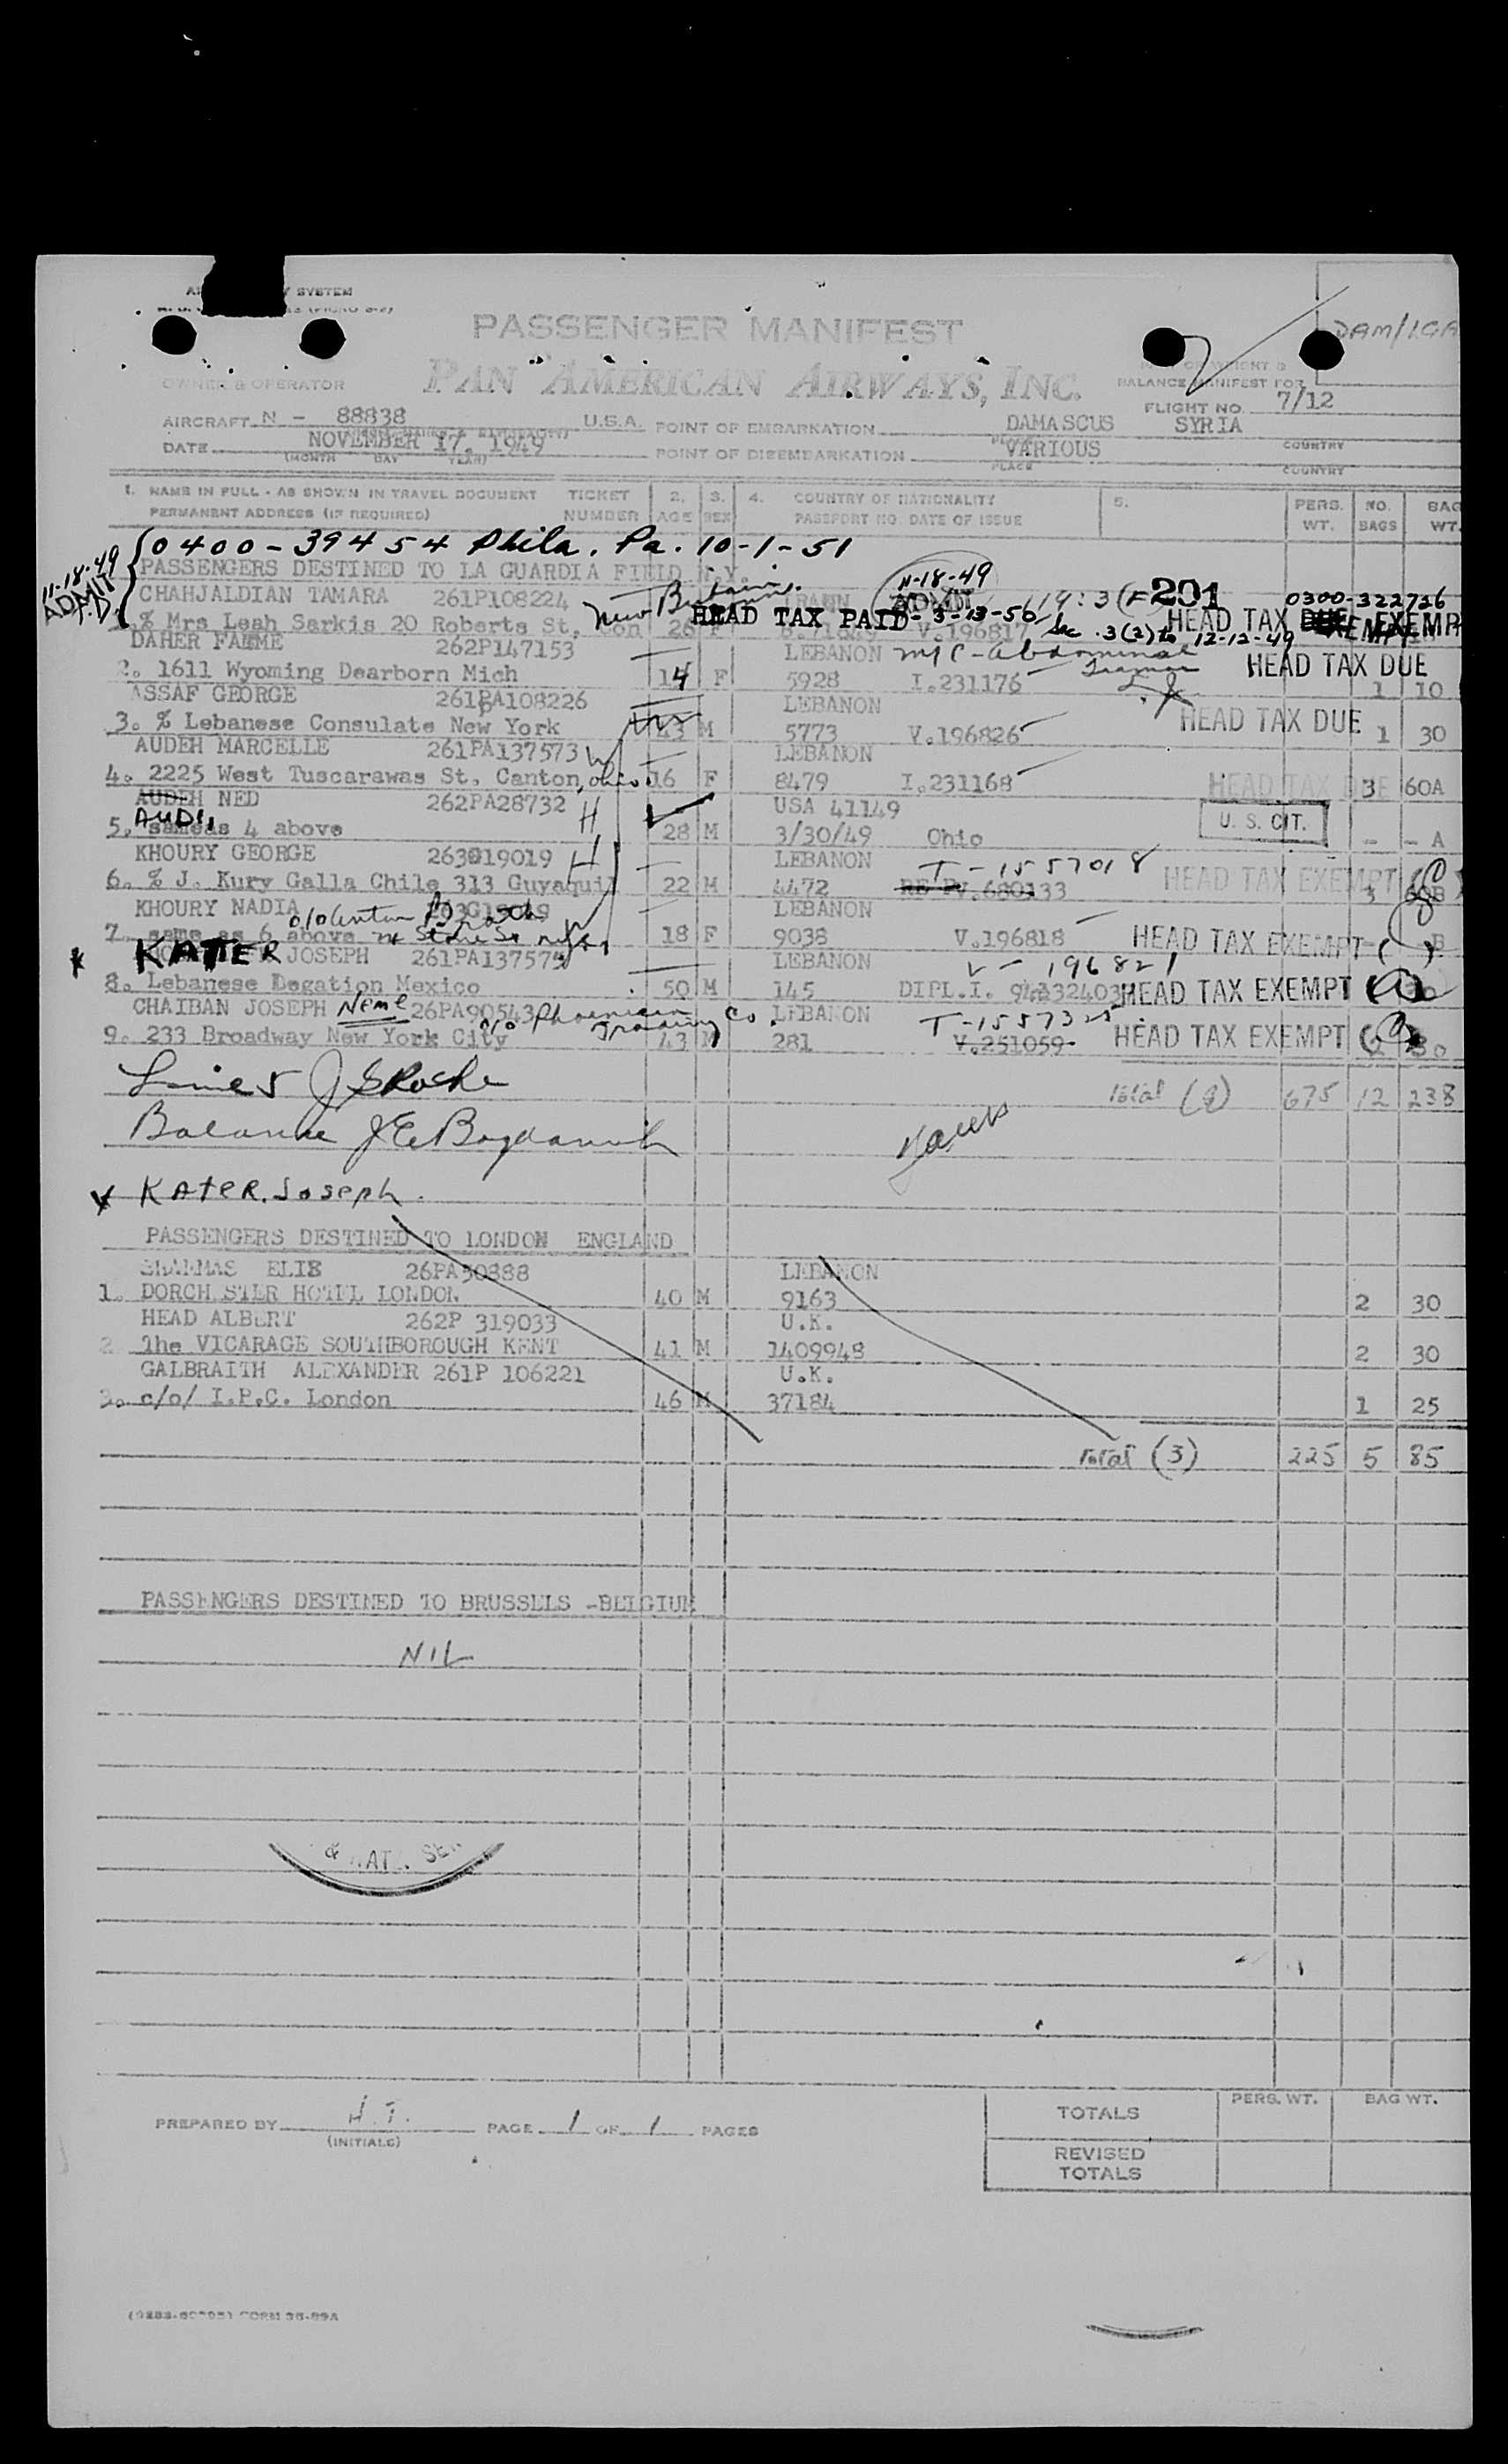 SYSTEM
PASSENGER MANIFEST
DAM/LGA
OWNER & OPERATOR
PAN AMERICAN AIRWAYS, INC.
BALANCE MANIFEST FOR
FLIGHT NO. 7/12
AIRCRAFT N - 88838 U.S.A. POINT OF EMBARKATION DAMASCUS SYRIA
DATE NOVEMBER 17. 1949 POINT OF DISEMBARKATION VARIOUS
(MONTH DAY YEAR) PLACE COUNTRY
1. NAME IN FULL - AS SHOWN IN TRAVEL DOCUMENT TICKET 2. 3. 4. COUNTRY OF NATIONALITY 5. PERS. NO. BAG
PERMANENT ADDRESS (IF REQUIRED) NUMBER AGE SEX PASSPORT NO. DATE OF ISSUE WT. BAGS WT.
0400-39454 Phila. Pa. 10-1-51
11-18-49 ADMIT
PASSENGERS DESTINED TO LA GUARDIA FIELD N.Y. 11-18-49
CHAHJALDIAN TAMARA 261P108224 New Britain 201 0300-322726
1. % Mrs Leah Sarkis 20 Roberts St, Con 26 F HEAD TAX PAID 3-13-50 V.196817 Sec. 3(2) to 12-12-49 HEAD TAX EXEMPT
DAHER FATME 262P147153 LEBANON M/C-abdominal
2. 1611 Wyoming Dearborn Mich 14 F 5928 I.231176 HEAD TAX DUE 1 10
ASSAF GEORGE 261PA108226 LEBANON
3. % Lebanese Consulate New York 43 M 5773 V.196826 HEAD TAX DUE 1 30
AUDEH MARCELLE 261PA137573 LEBANON
4. 2225 West Tuscarawas St, Canton, ohio 16 F 8479 I.231168 HEAD TAX DUE 3 60A
AUDEH NED 262PA28732 H USA 41149
AUDI
5. same as 4 above 28 M 3/30/49 Ohio U. S. CIT. - - A
KHOURY GEORGE 263G19019 H LEBANON T-1557018
6. % J. Kury Galla Chile 313 Guyaquil 22 M 4472 V.680133 HEAD TAX EXEMPT 3 60B
KHOURY NADIA LEBANON
7. same as 6 above 18 F 9038 V.196818 HEAD TAX EXEMPT B
KATTER JOSEPH 261PA137575 LEBANON V-196821
8. Lebanese Legation Mexico 50 M 145 DIPL.I. HEAD TAX EXEMPT
CHAIBAN JOSEPH Neme 26PA90543 c/o Phoenician Trading Co. LEBANON
9. 233 Broadway New York City 43 M 281 V.251059 HEAD TAX EXEMPT
Total (9) 675 12 238
Balance
KATER. Joseph.
PASSENGERS DESTINED TO LONDON ENGLAND
ELIE 26PA50888 LEBANON
1. DORCHESTER HOTEL LONDON 40 M 9163 2 30
HEAD ALBERT 262P 319033 U.K.
2 The VICARAGE SOUTHBOROUGH KENT 41 M 1409948 2 30
GALBRAITH ALEXANDER 261P 106221 U.K.
3. c/o/ I.P.C. London 46 M 37184 1 25
Total (3) 225 5 85
PASSENGERS DESTINED TO BRUSSELS -BELGIUM
NIL
PREPARED BY H.T. PAGE 1 OF 1 PAGES
(INITIALS)
PERS. WT. BAG WT.
TOTALS
REVISED
TOTALS